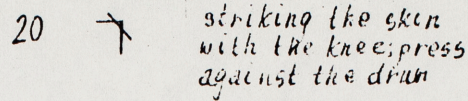 20 striking the skin
with the knee; press
against the drum